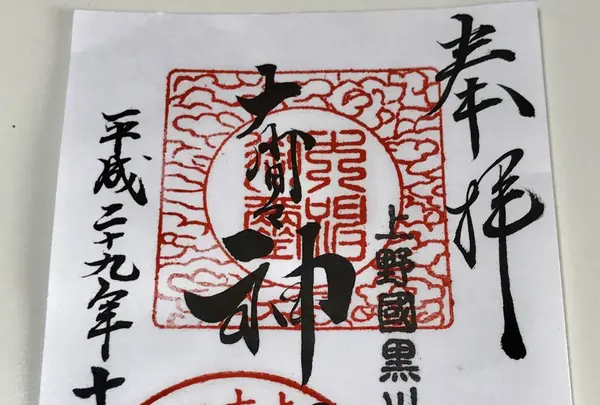 奉拝
上野國黒川
大間々神
平成二十九年十